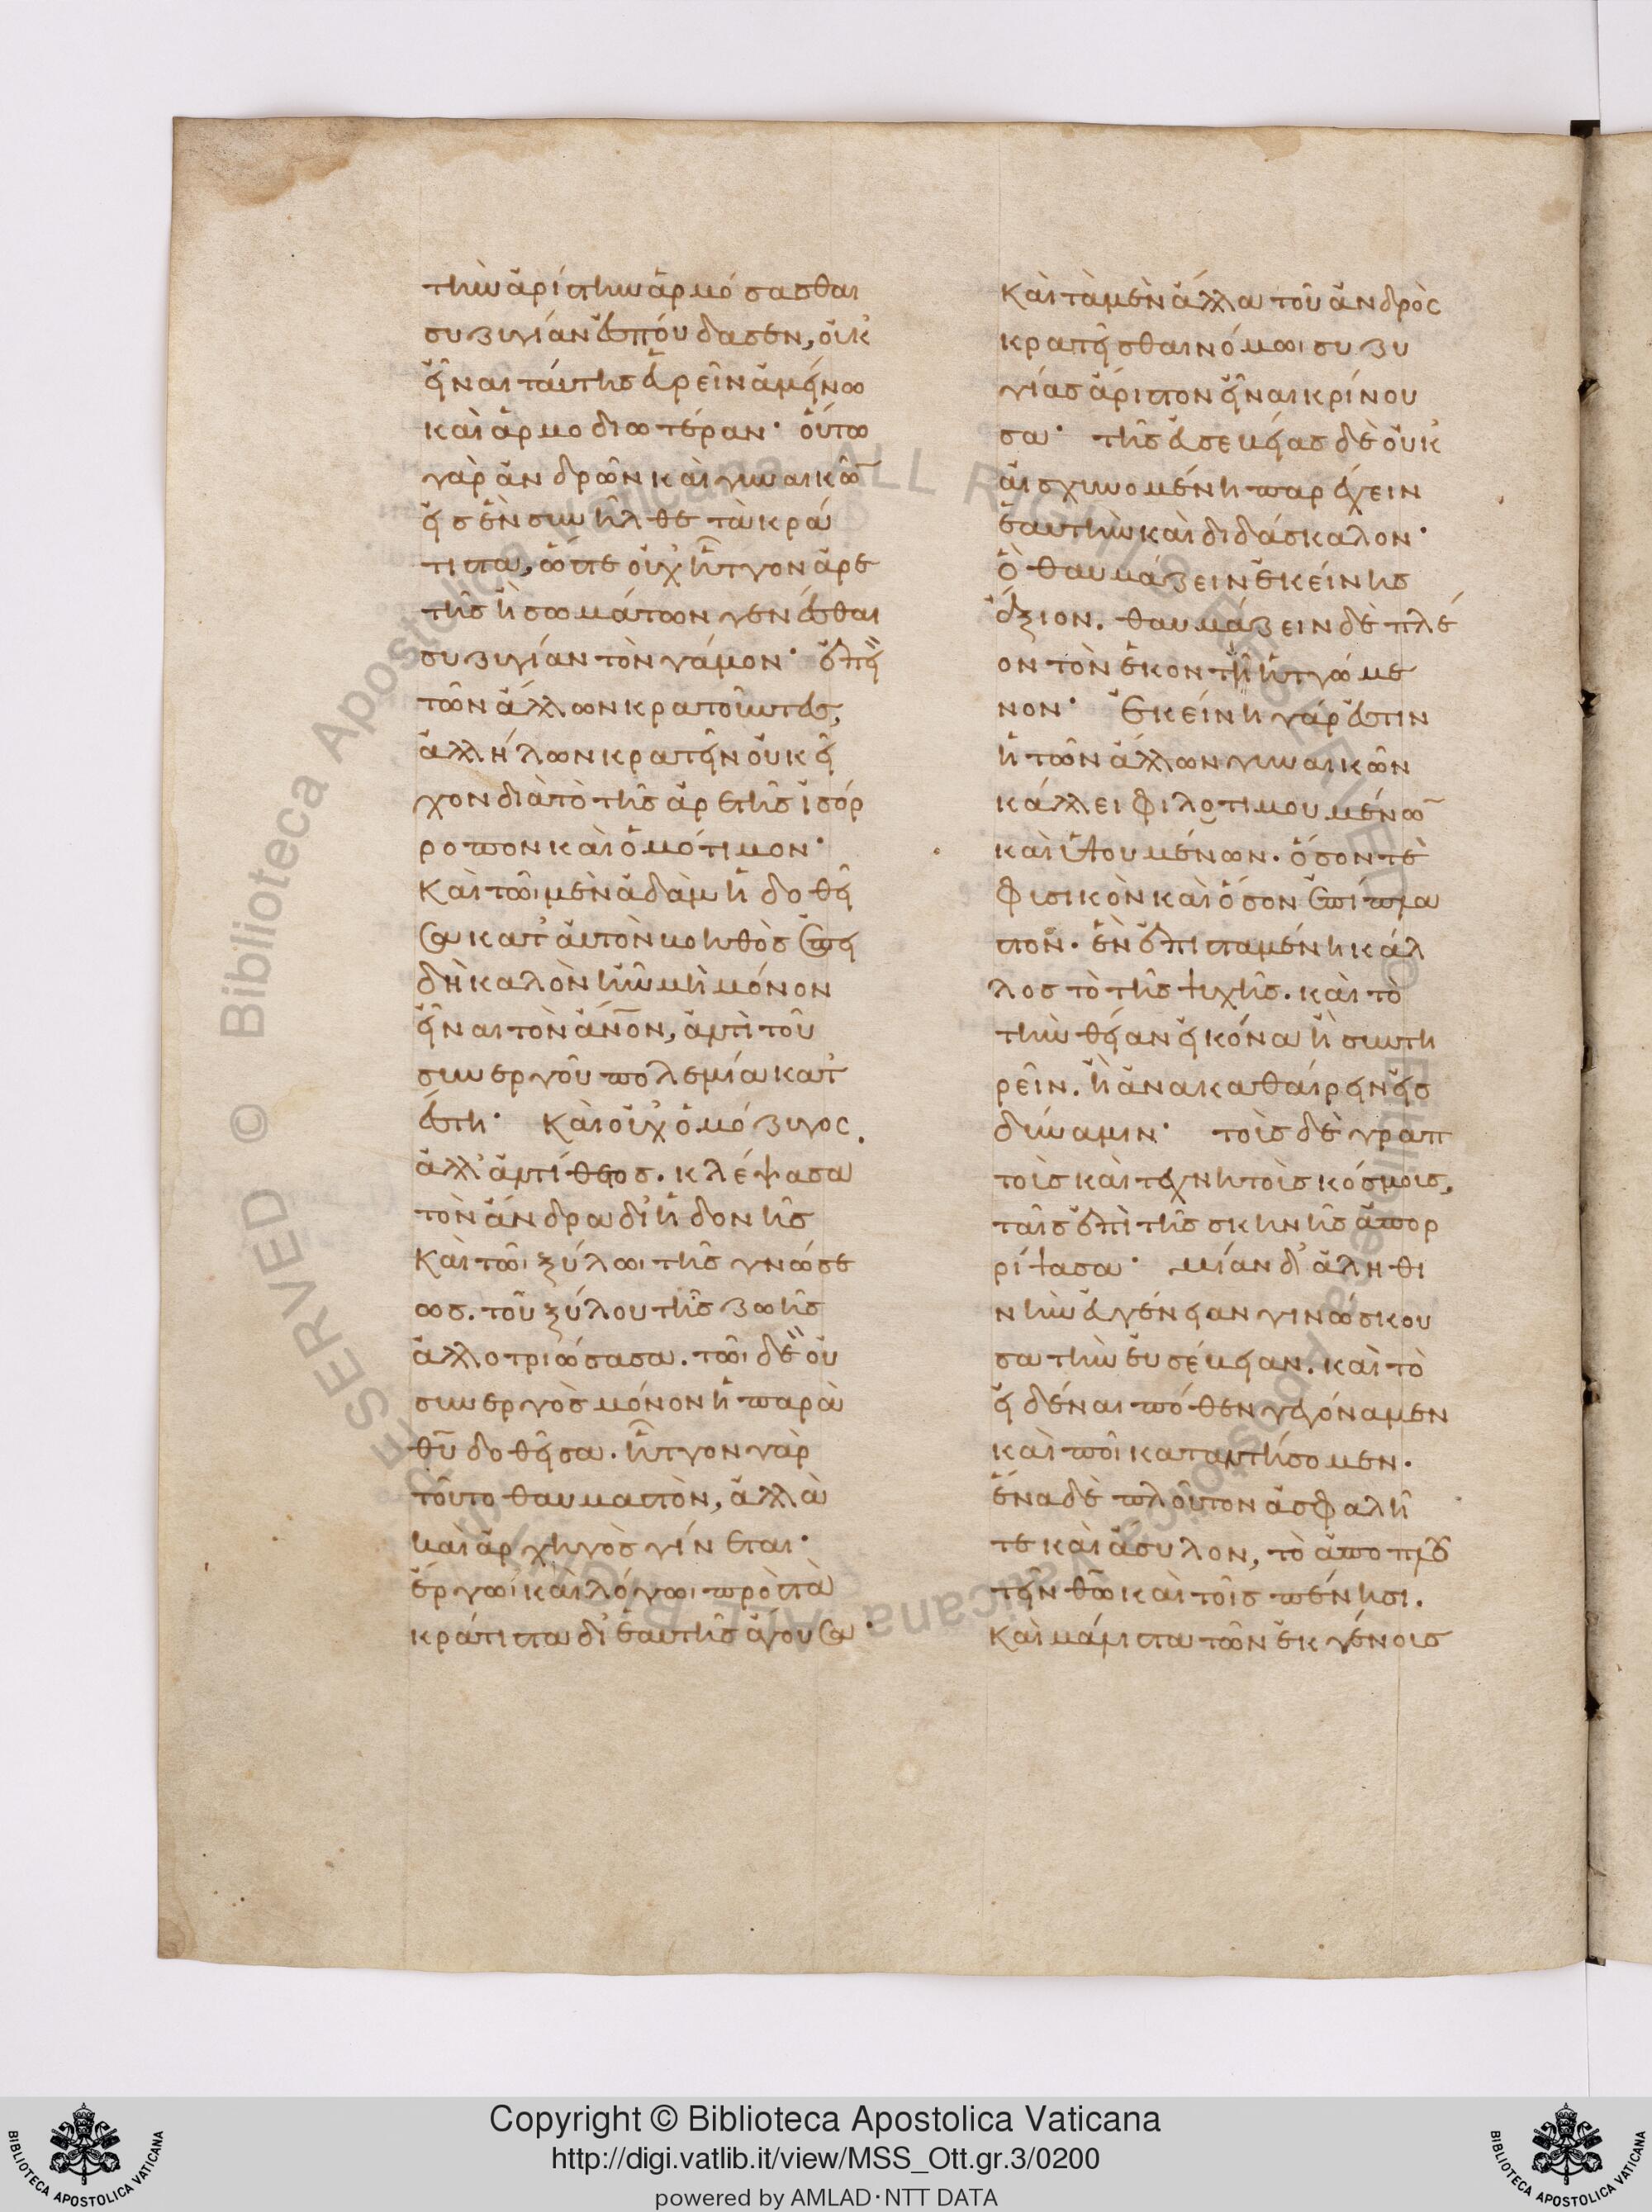 τὴν ἀρίστην ἁρμόσασθαι
συζυγίαν ἐσπούδασεν, οὐκ
εἶναι ταύτης εὑρεῖν ἀμείνω
καὶ ἁρμοδιωτέραν· οὕτω
γὰρ ἀνδρῶν καὶ γυναικῶ̅
εἰς ἓν συνῆλθε τὰ κρά
τιστα, ὥστε οὐχ ἧττον ἀρε
τῆς ἢ σωμάτων γενέσθαι
συζυγίαν τὸν γάμον· ἐπεὶ
τῶν ἄλλων κρατοῦντες,
ἀλλήλων κρατεῖν οὐκ εἶ
χον διὰ τὸ τῆς ἀρετῆς ἰσόρ
ροπον καὶ ὁμότιμον·
Καὶ τῶι μὲν ἀδὰμ ἡ δοθεῖ
σα κατ' αὐτὸν βοηθὸς ἐπει
δὴ καλὸν ἦν μὴ μόνον
εἶναι τὸν ἄν̅ο̅ν, ἀντὶ τοῦ
συνεργοῦ πολεμία κατ
έστη· Καὶ οὐχ ὁμόζυγος,
ἀλλ' ἀντίθεος. κλέψασα
τὸν ἄνδρα δι' ἡδονῆς
Καὶ τῶι ξύλωι τῆς γνώσε
ως. τοῦ ξύλου τῆς ζωῆς
ἀλλοτριώσασα. τῶι δὲ οὐ
συνεργὸς μόνον ἡ παρὰ
θ̅υ̅ δοθεῖσα. ἧττον γὰρ
τοῦτο θαυμαστὸν, ἀλλὰ
καὶ ἀρχηγὸς γίνεται·
ἔργωι καὶ λόγωι πρὸς τὰ
κράτιστα δι' ἑαυτῆς ἄγουσα·
Καὶ τὰ μὲν ἄλλα τοῦ ἀνδρὸς
κρατεῖσθαι νόμωι συζυ
γίας ἄριστον εἶναι κρίνου
σα· τῆς εὐσεβείας δὲ οὐκ
αἰσχυνομένη παρέχειν
ἑαυτὴν καὶ διδάσκαλον·
Ὃ θαυμάζειν ἐκείνης
ἄξιον. θαυμάζειν δὲ πλέ
ον τὸν ἑκοντὶ ἡττώμε
νον· Ἐκείνη γάρ ἐστιν
ἣ τῶν ἄλλων γυναικῶν
κάλλει φιλοτιμουμένω̅
καὶ ἡττουμένων. ὅσον τὲ
φυσικὸν καὶ ὅσον ἐπίπλα
στον. ἓν ἐπισταμένη κάλ
λος τὸ τῆς ψυχῆς. καὶ τὸ
τὴν θείαν εἰκόνα ἢ συντη
ρεῖν. ἢ ἀνακαθαίρειν εἰς
δύναμιν· τοὺς δὲ γραπ
τοὺς καὶ τεχνητοὺς κόσμους,
ταῖς ἐπὶ τῆς σκηνῆς ἀπορ
ρίψασα· μίαν δ' ἀληθι
νὴν εὐγένειαν γινώσκου
σα τὴν εὐσέβειαν. καὶ τὸ
εἰδέναι πόθεν γεγόναμεν
καὶ ποῖ καταντήσομεν.
ἕνα δὲ πλοῦτον ἀσφαλῆ
τε καὶ ἄσυλον, τὸ ἀποπλου
τεῖν θ̅ῶ̅ καὶ τοῖς πένησι.
Καὶ μάλιστα τῶν ἐκ γένους
Copyright © Biblioteca Apostolica Vaticana
http://digi.vatlib.it/view/MSS_Ott.gr.3/0200
powered by AMLAD·NTT DATA